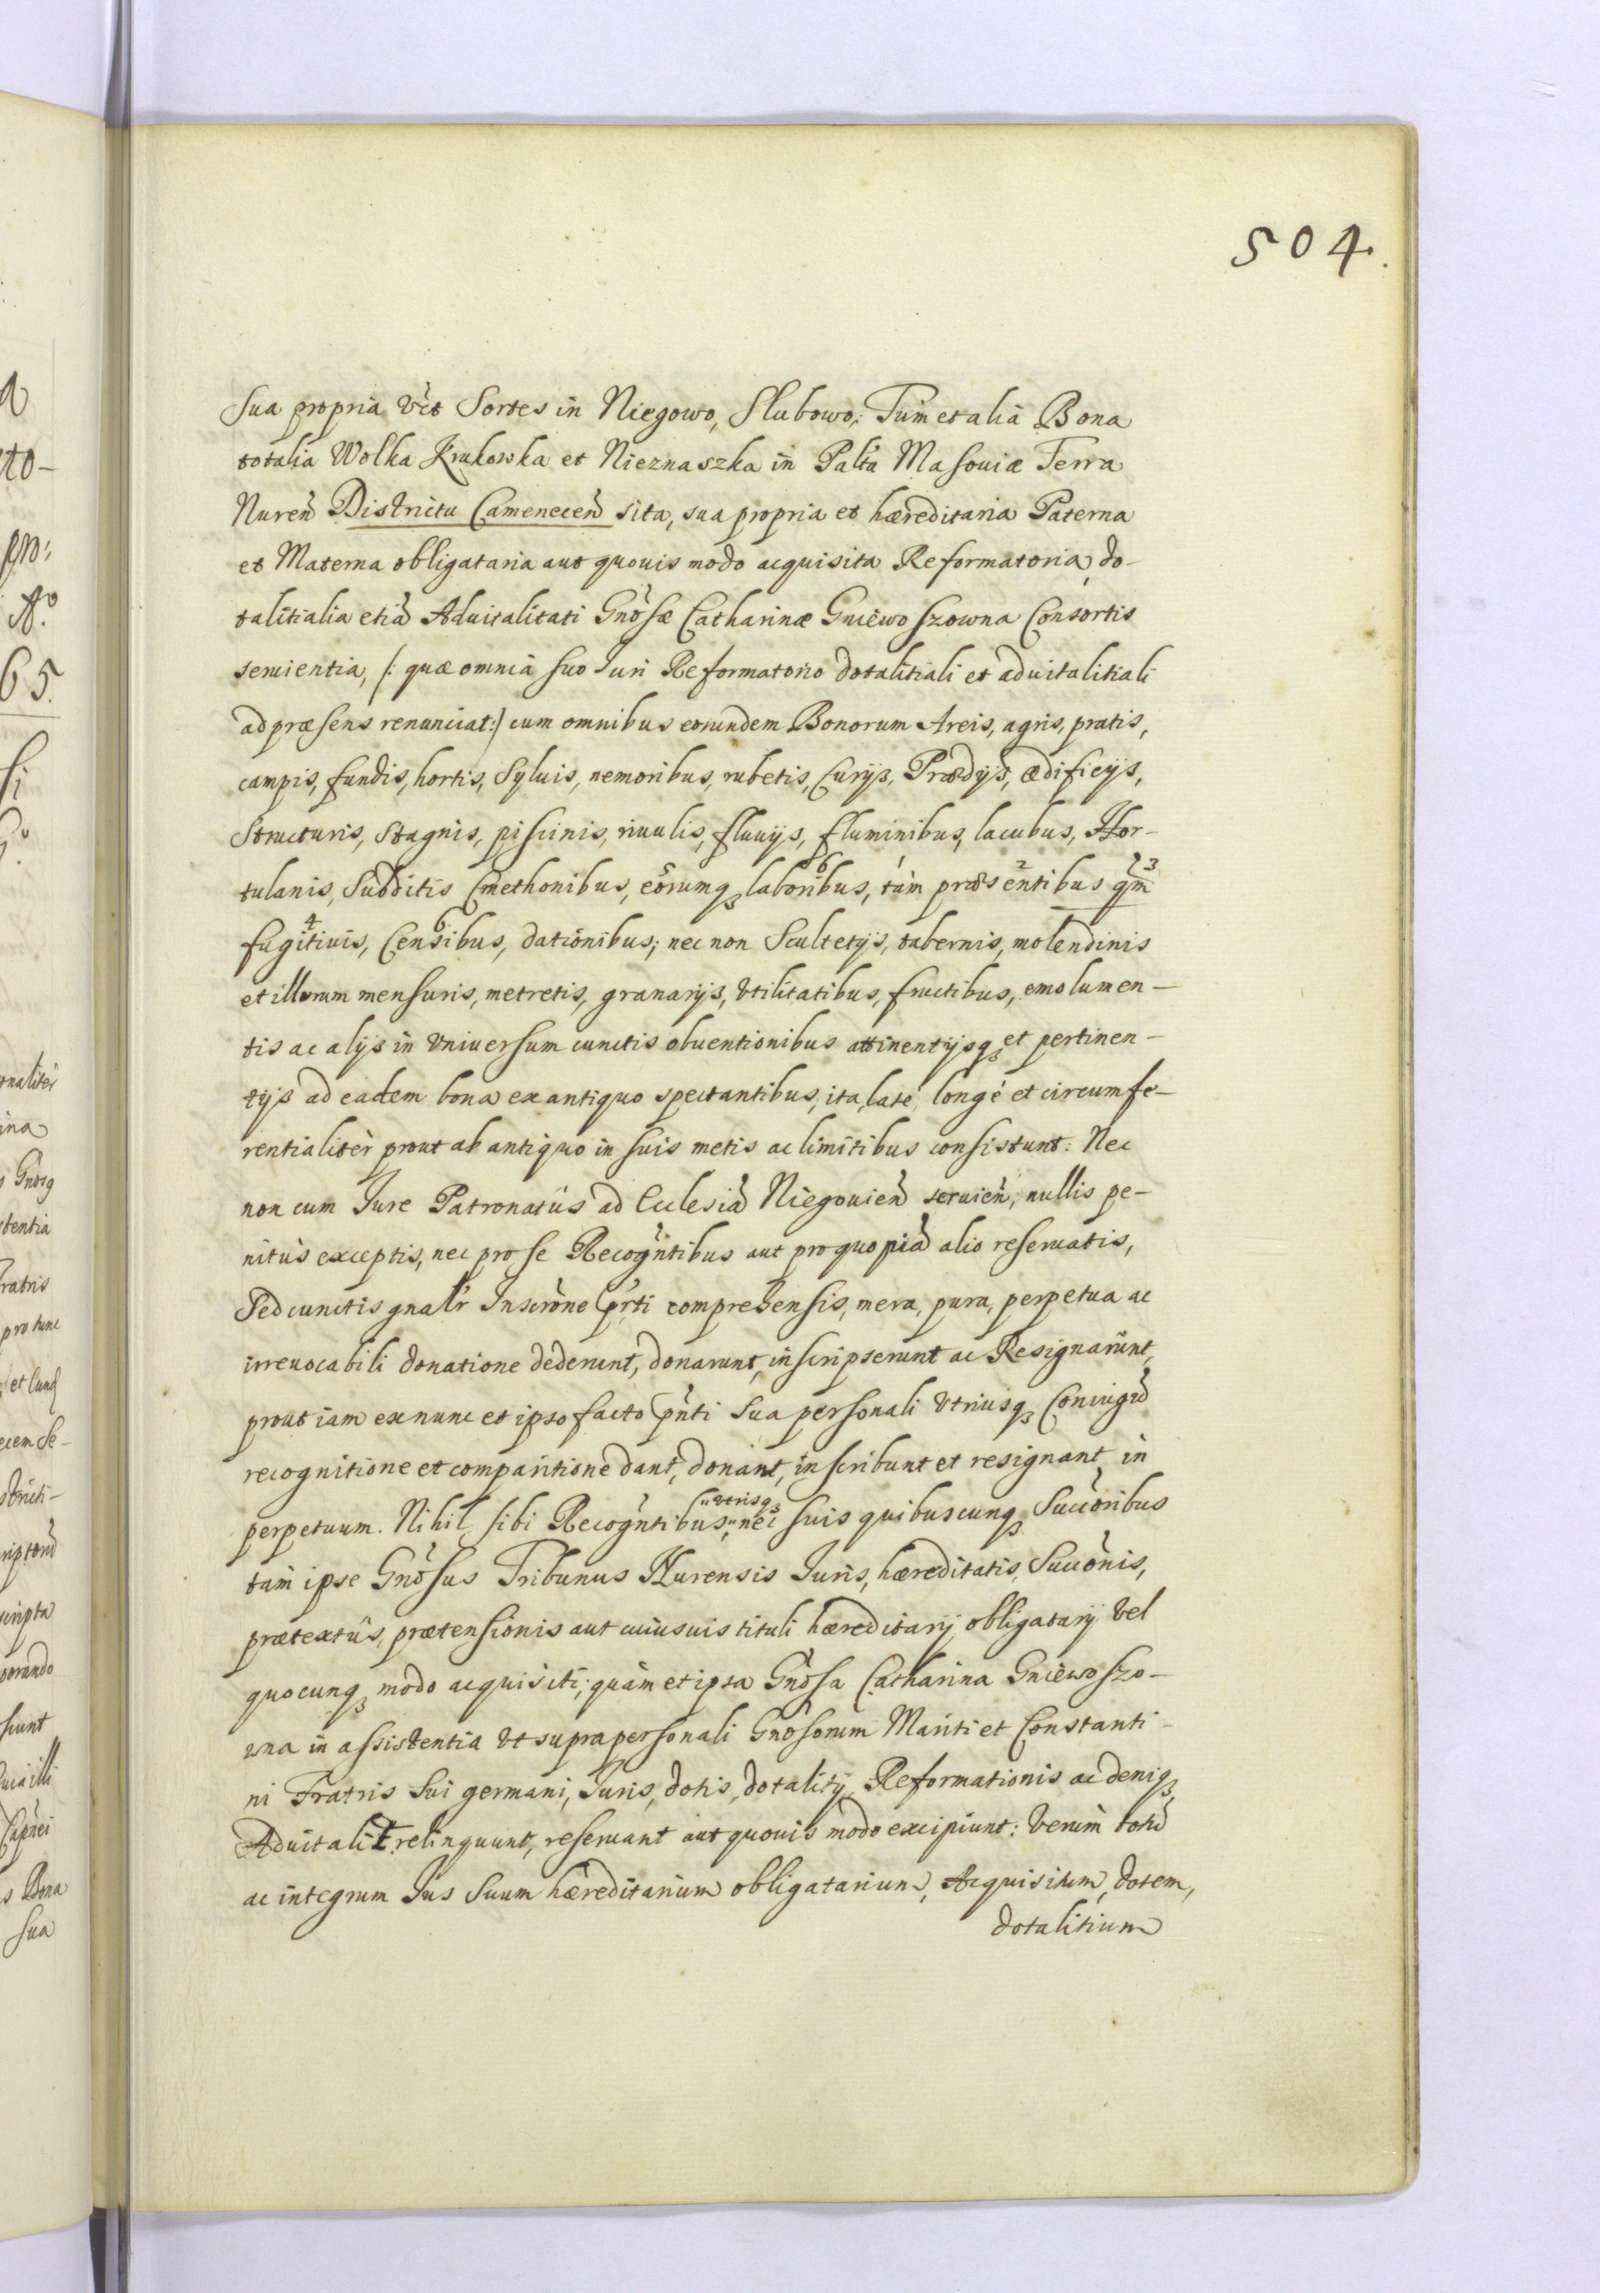 504.
Sua propria vĉt Sortes in Niegowo, Slubowo; Tùm et alia Bona
totalia Wolka Krukowska et Nieznaszka in Paltũ Masouiæ Terra
Nureñ Districtu Cameneceñ sita, sua propria et hæreditaria Paterna
et Materna obligataria aut quouis modo acquisita Reformatoria, do-
talitialia etiã Aduitalitati Gñosæ Catharinæ Gniewoszowna Consortis
seruientia, /: quæ omnia suo Iuri Reformatorio dotalitiali et aduitalitiali
ad præsens renunciat:/ cum omnibus eorundem Bonorum Areis, agris, pratis,
campis, fundis, hortis, Syluis, nemoribus, rubetis, Curijs, Prædijs, ædificijs,
Structuris, Stagnis, piscinis, riuulis, fluuijs, fluminibus, lacubus, Hor-
tulanis, Subditis Cmethonibus, eorumq; laboribus, tàm præsentibus qm̃
fugitiuis, Censibus, dationibus; nec non Scultetijs, tabernis, molendinis
et illorum mensuris, metretis, granarijs, Vtilitatibus, fructibus, emolumen-
tis ac alijs in Vniuersum cunctis obuentionibus attinentijsq; et pertinen-
tijs ad eadem bona ex antiquo spectantibus, ita, latè, longè et circumfe-
rentialitèr prout ab antiquo in suis metis ac limitibus consistunt: Nec
non cum Iure Patronatûs ad Ecclesiã Niegouieñ seruieñ, nullis pe-
nitùs exceptis, nec pro se Recogñtibus aut pro quopiã alio reseruatis,
Sed cunctis gnalr̃ Inscrõne p̃rti comprehensis, mera, pura, perpetua ac
irreuocabili donatione dederunt, donarunt, inscripserunt ac Resignarunt,
prout iam ex nunc et ipso facto p̃nti sua personali Vtriusq; Coniugũ
recognitione et comparitione dant, donant, inscribunt et resignant in
perpetuum. Nihil sibi Recogñtibus, "utrisq; "nec suis quibuscunq; Succõribus
tàm ipse Gñosus Tribunus Nurensis Iuris, hæreditatis, Succõnis,
prætextûs, prætensionis aut cuiusuis tituli hæreditarij obligatarij Vel
quocunq; modo acquisiti; quàm et ipsa Gñosa Catharina Gniewoszo-
wna in assistentia Vt supra personali Gñosorum Mariti et Constanti-
ni Fratris Sui germani, Iuris, dotis, dotalitij, Reformationis ac deniq;
Aduitalit̃ relinquunt, reseruant aut quouis modo excipiunt: Verùm totũ
ac integrum Ius Suum hæreditarium obligatarium, Acquisitum, dotem,
dotalitium